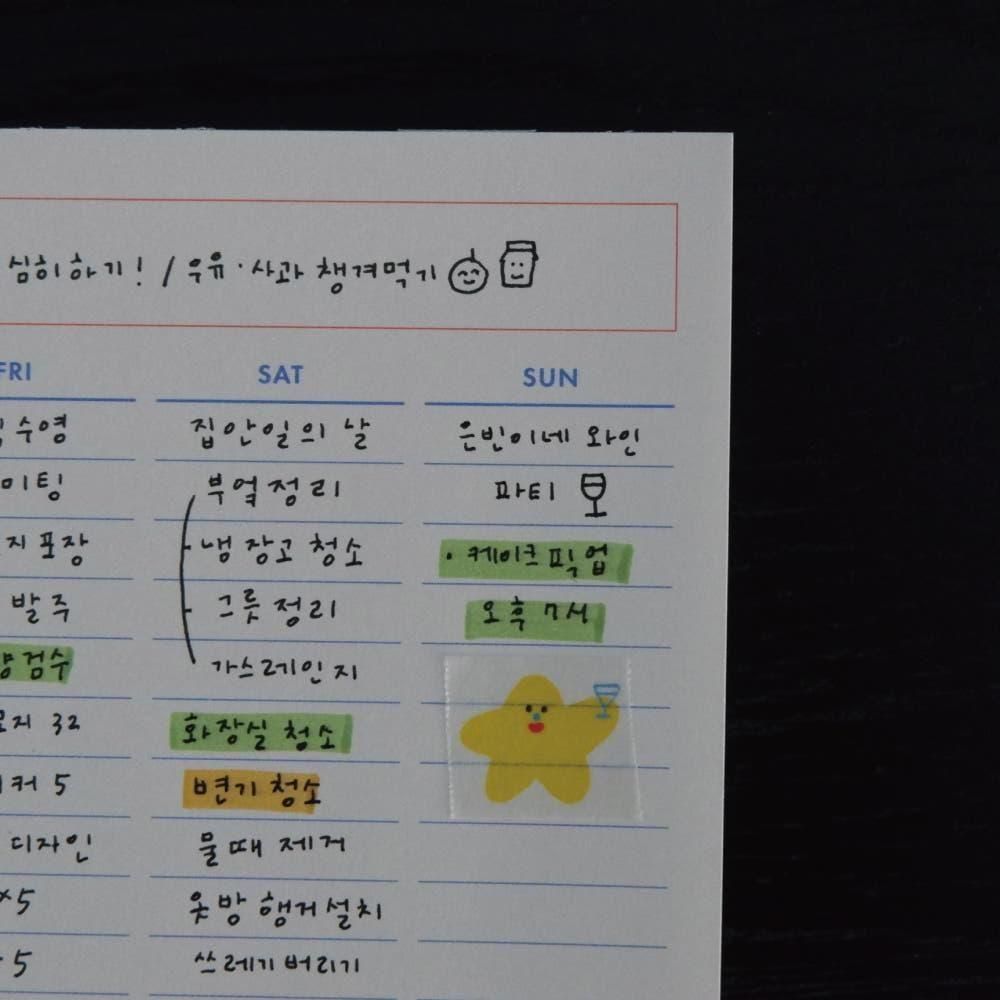 심히하기! / 우유·사과 챙겨먹기
FRI
수영
미팅
지 포장
발주
검수
모지 32
커 5
디자인
x5
5
SAT
집안일의 날
부엌정리
냉장고 청소
그릇정리
가스레인지
화장실 청소
변기 청소
물때 제거
옷방 행거설치
쓰레기 버리기
SUN
은빈이네 와인
파티
· 케이크 픽업
오후 7시